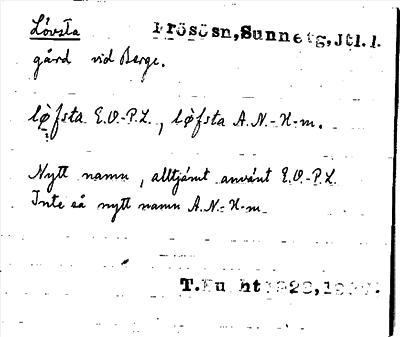 Lövsta Frösösn, Sunne tg, Jtl. l.
gård vid Berge.
lø̀fsta E.O.-P.L., lø̀fsta A.N.-H-m.
Nytt namn, alltjämt använt E.O.-P.L.
Inte så nytt namn A.N.-H-m.
T. 1922,